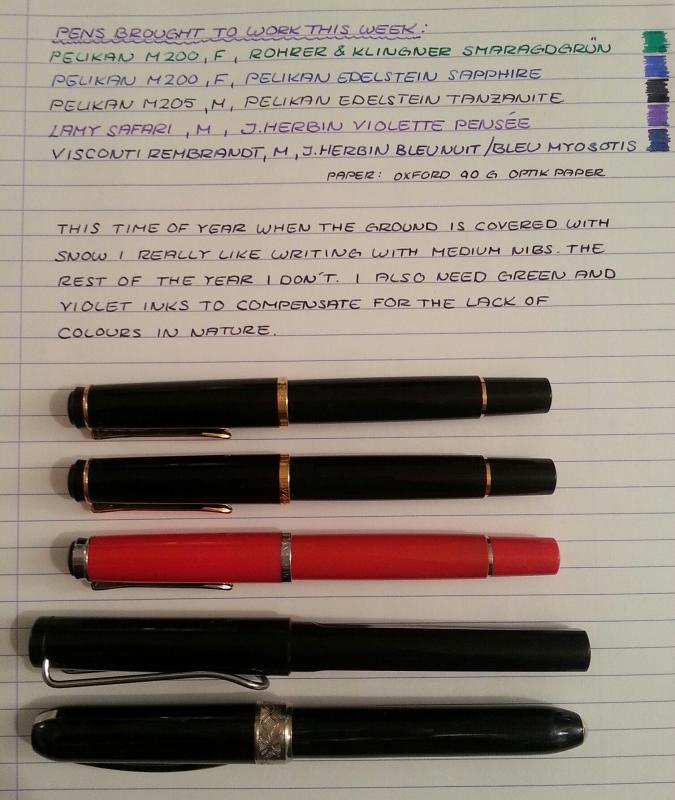 PENS BROUGHT TO WORK THIS WEEK:
PELIKAN M200, F, ROHRER & KLINGNER SMARAGDGRÜN
PELIKAN M200, F, PELIKAN EDELSTEIN SAPPHIRE
PELIKAN M205, M, PELIKAN EDELSTEIN TANZANITE
LAMY SAFARI, M, J.HERBIN VIOLETTE PENSÉE
VISCONTI REMBRANDT, M, J.HERBIN BLEU NUIT/BLEU MYOSOTIS
PAPER: OXFORD 90 G OPTIK PAPER
THIS TIME OF YEAR WHEN THE GROUND IS COVERED WITH
SNOW I REALLY LIKE WRITING WITH MEDIUM NIBS. THE
REST OF THE YEAR I DON'T. I ALSO NEED GREEN AND
VIOLET INKS TO COMPENSATE FOR THE LACK OF
COLOURS IN NATURE.